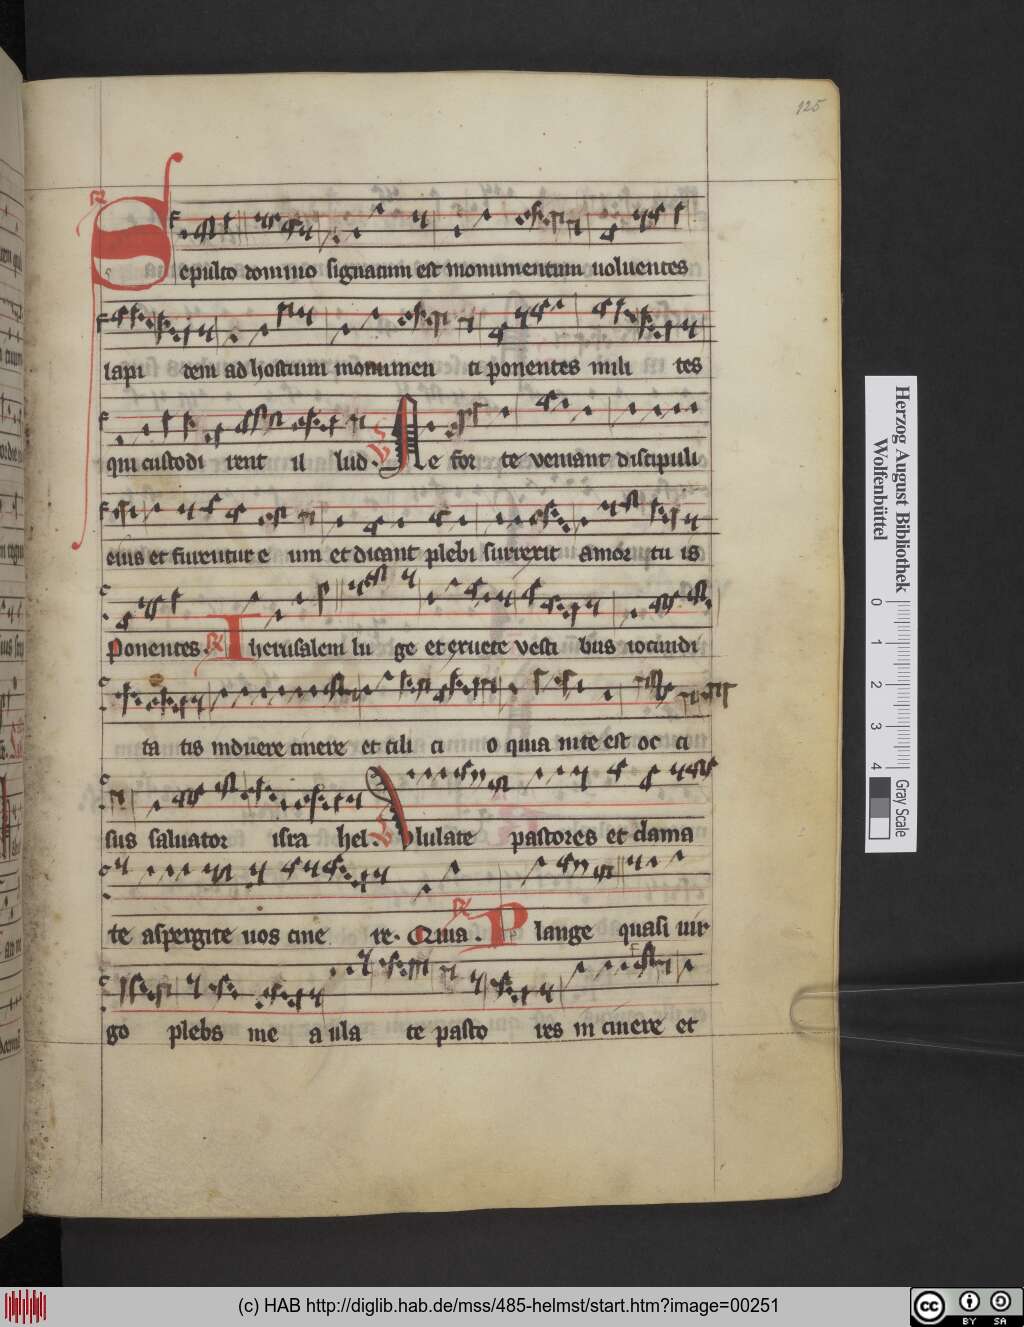 125
R Sepulto domino signatum est monumentum uoluentes
lapi dem ad hostium monumen ti ponentes mili tes
qui custodi rent il lud. V Ne for te veniant discipuli
eius et furentur e um et dicant plebi surrexit amor tu is
Ponentes. R Iherusalem lu ge et exuete vesti bus iocundi
ta tis induere cinere et cili ci o quia in te est oc ci
sus saluator isra hel. V Ululate pastores et clama
te aspergite uos cine re. Quia. R Plange quasi uir
go plebs me a ula te pasto res in cinere et
Herzog August Bibliothek
Wolfenbüttel
0 1 2 3 4
Gray Scale
(c) HAB http://diglib.hab.de/mss/485-helmst/start.htm?image=00251
cc BY SA